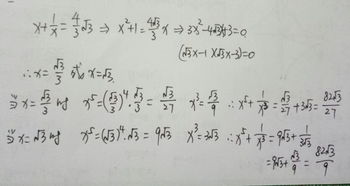 x+\frac{1}{x}=\frac{4}{3}\sqrt{3} ⇒ x²+1=\frac{4\sqrt{3}}{3}x ⇒ 3x²-4\sqrt{3}x+3=0
(\sqrt{3}x-1)(\sqrt{3}x-3)=0
∴ x=\frac{\sqrt{3}}{3} 또는 x=\sqrt{3}.
x=\frac{\sqrt{3}}{3} x⁵=(\frac{\sqrt{3}}{3})⁴·\frac{\sqrt{3}}{3}=\frac{\sqrt{3}}{27} x³=\frac{\sqrt{3}}{9} ∴ x⁵+\frac{1}{x³}=\frac{\sqrt{3}}{27}+3\sqrt{3}=\frac{82\sqrt{3}}{27}
x=\sqrt{3} x⁵=(\sqrt{3})⁴·\sqrt{3}=9\sqrt{3} x³=3\sqrt{3} ∴ x⁵+\frac{1}{x³}=9\sqrt{3}+\frac{1}{3\sqrt{3}}
=9\sqrt{3}+\frac{\sqrt{3}}{9}=\frac{82\sqrt{3}}{9}